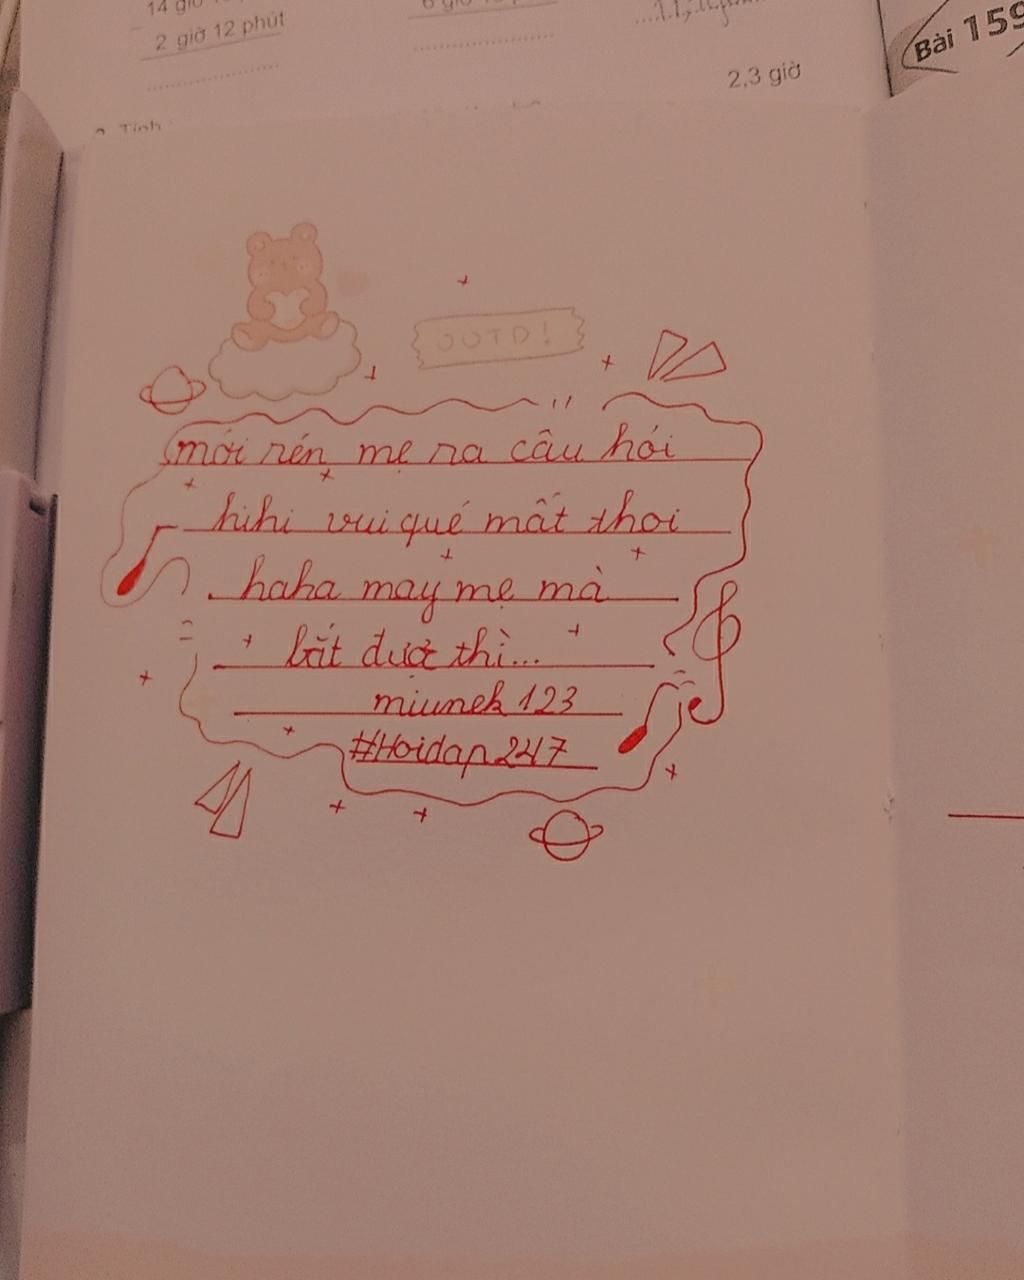 14 giờ
2 giờ 12 phút
2,3 giờ
Bài 159
Tính
OOTD!
mới rén mẹ ra câu hỏi
hihi vui qué mất thoi
haha may mẹ mà
bắt được thì...
miunek 123
#Hoidap247